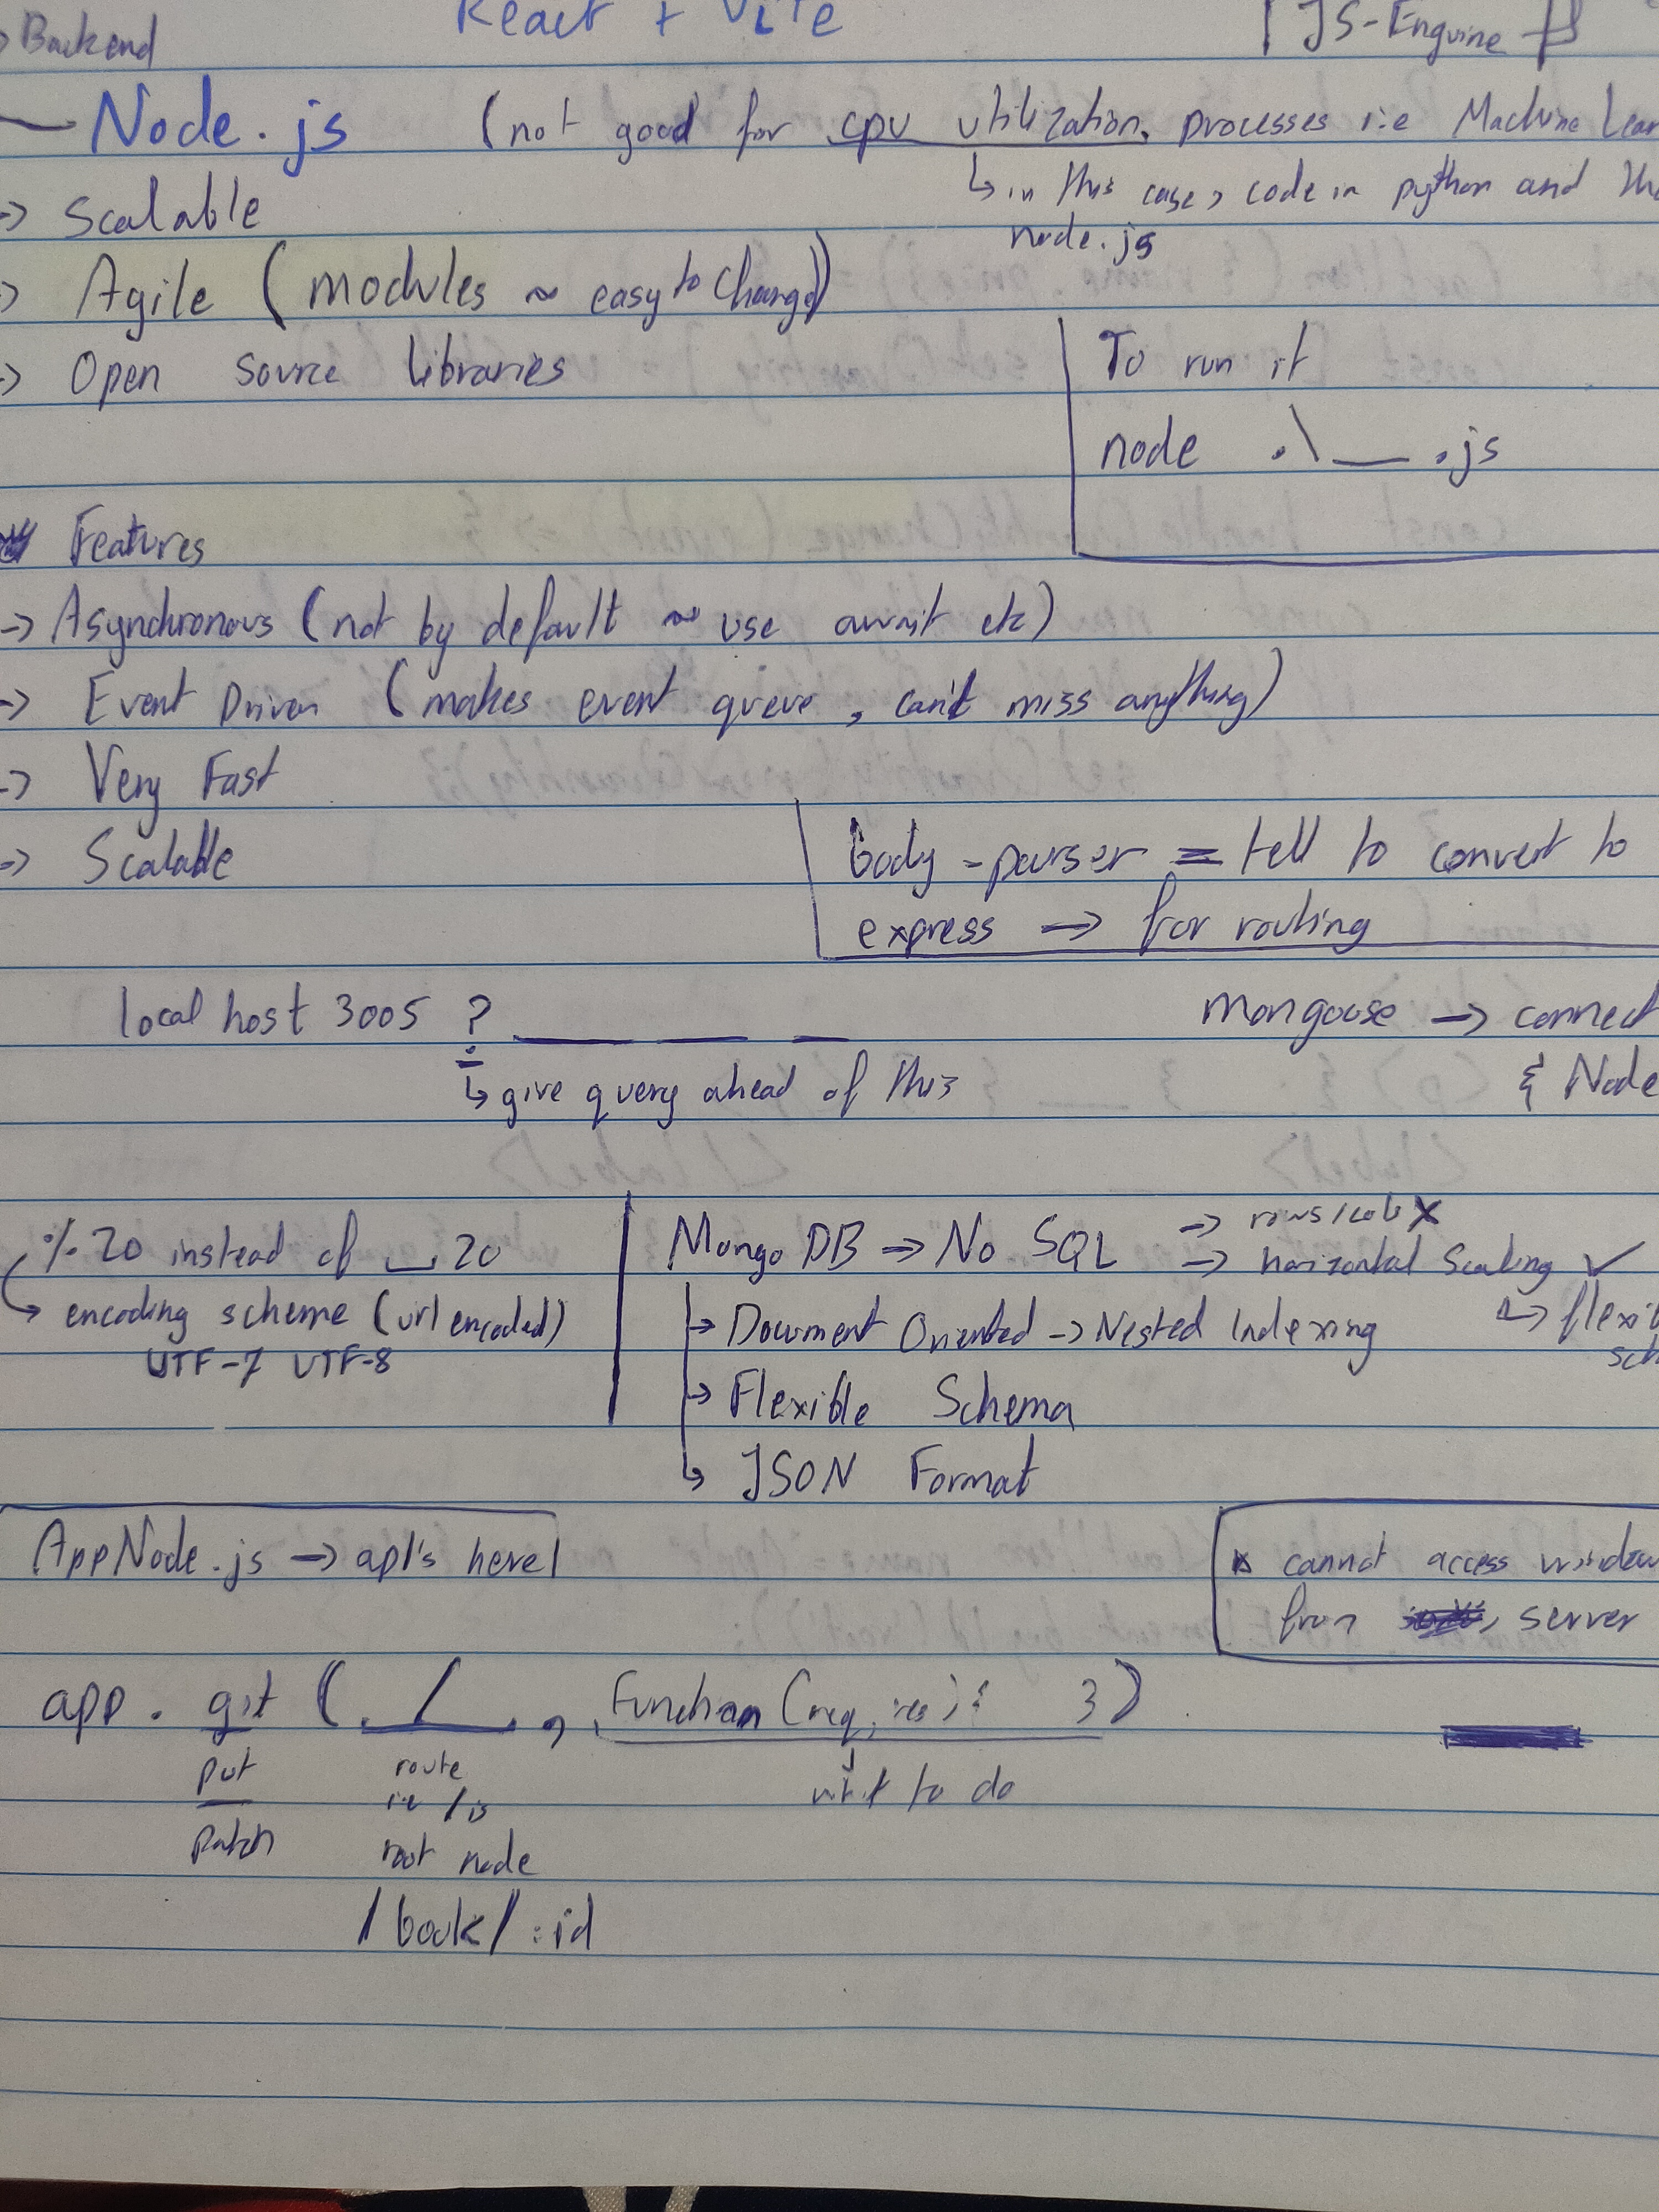 Backend
React + Vite
JS-Enguine
Node.js (not good for cpu utilization, processes i.e Machine Lear
↳ in this case, code in python and the
node.js
→ Scalable
→ Agile (modules ~ easy to change)
→ Open source libraries
To run it
node .\__.js
Features
→ Asynchronous (not by default ~ use await etc)
→ Event Driven (makes event queue, can't miss anything)
→ Very Fast
→ Scalable
body-parser = tell to convert to
express → for routing
local host 3005 ? __ __ __
↳ give query ahead of this
mongoose → connect
& Node
% 20 instead of ␣ 20
↳ encoding scheme (url encoded)
UTF-7 UTF-8
Mongo DB → No SQL → rows/cols X
→ horizontal Scaling ✓
↳ flexi
sch
→ Document Oriented → Nested Indexing
→ Flexible Schema
↳ JSON Format
AppNode.js → apI's here
cannot access window
from server
app.get (./., Function (req, res) { })
put
patch
route
i.e / is
root node
/book/:id
what to do